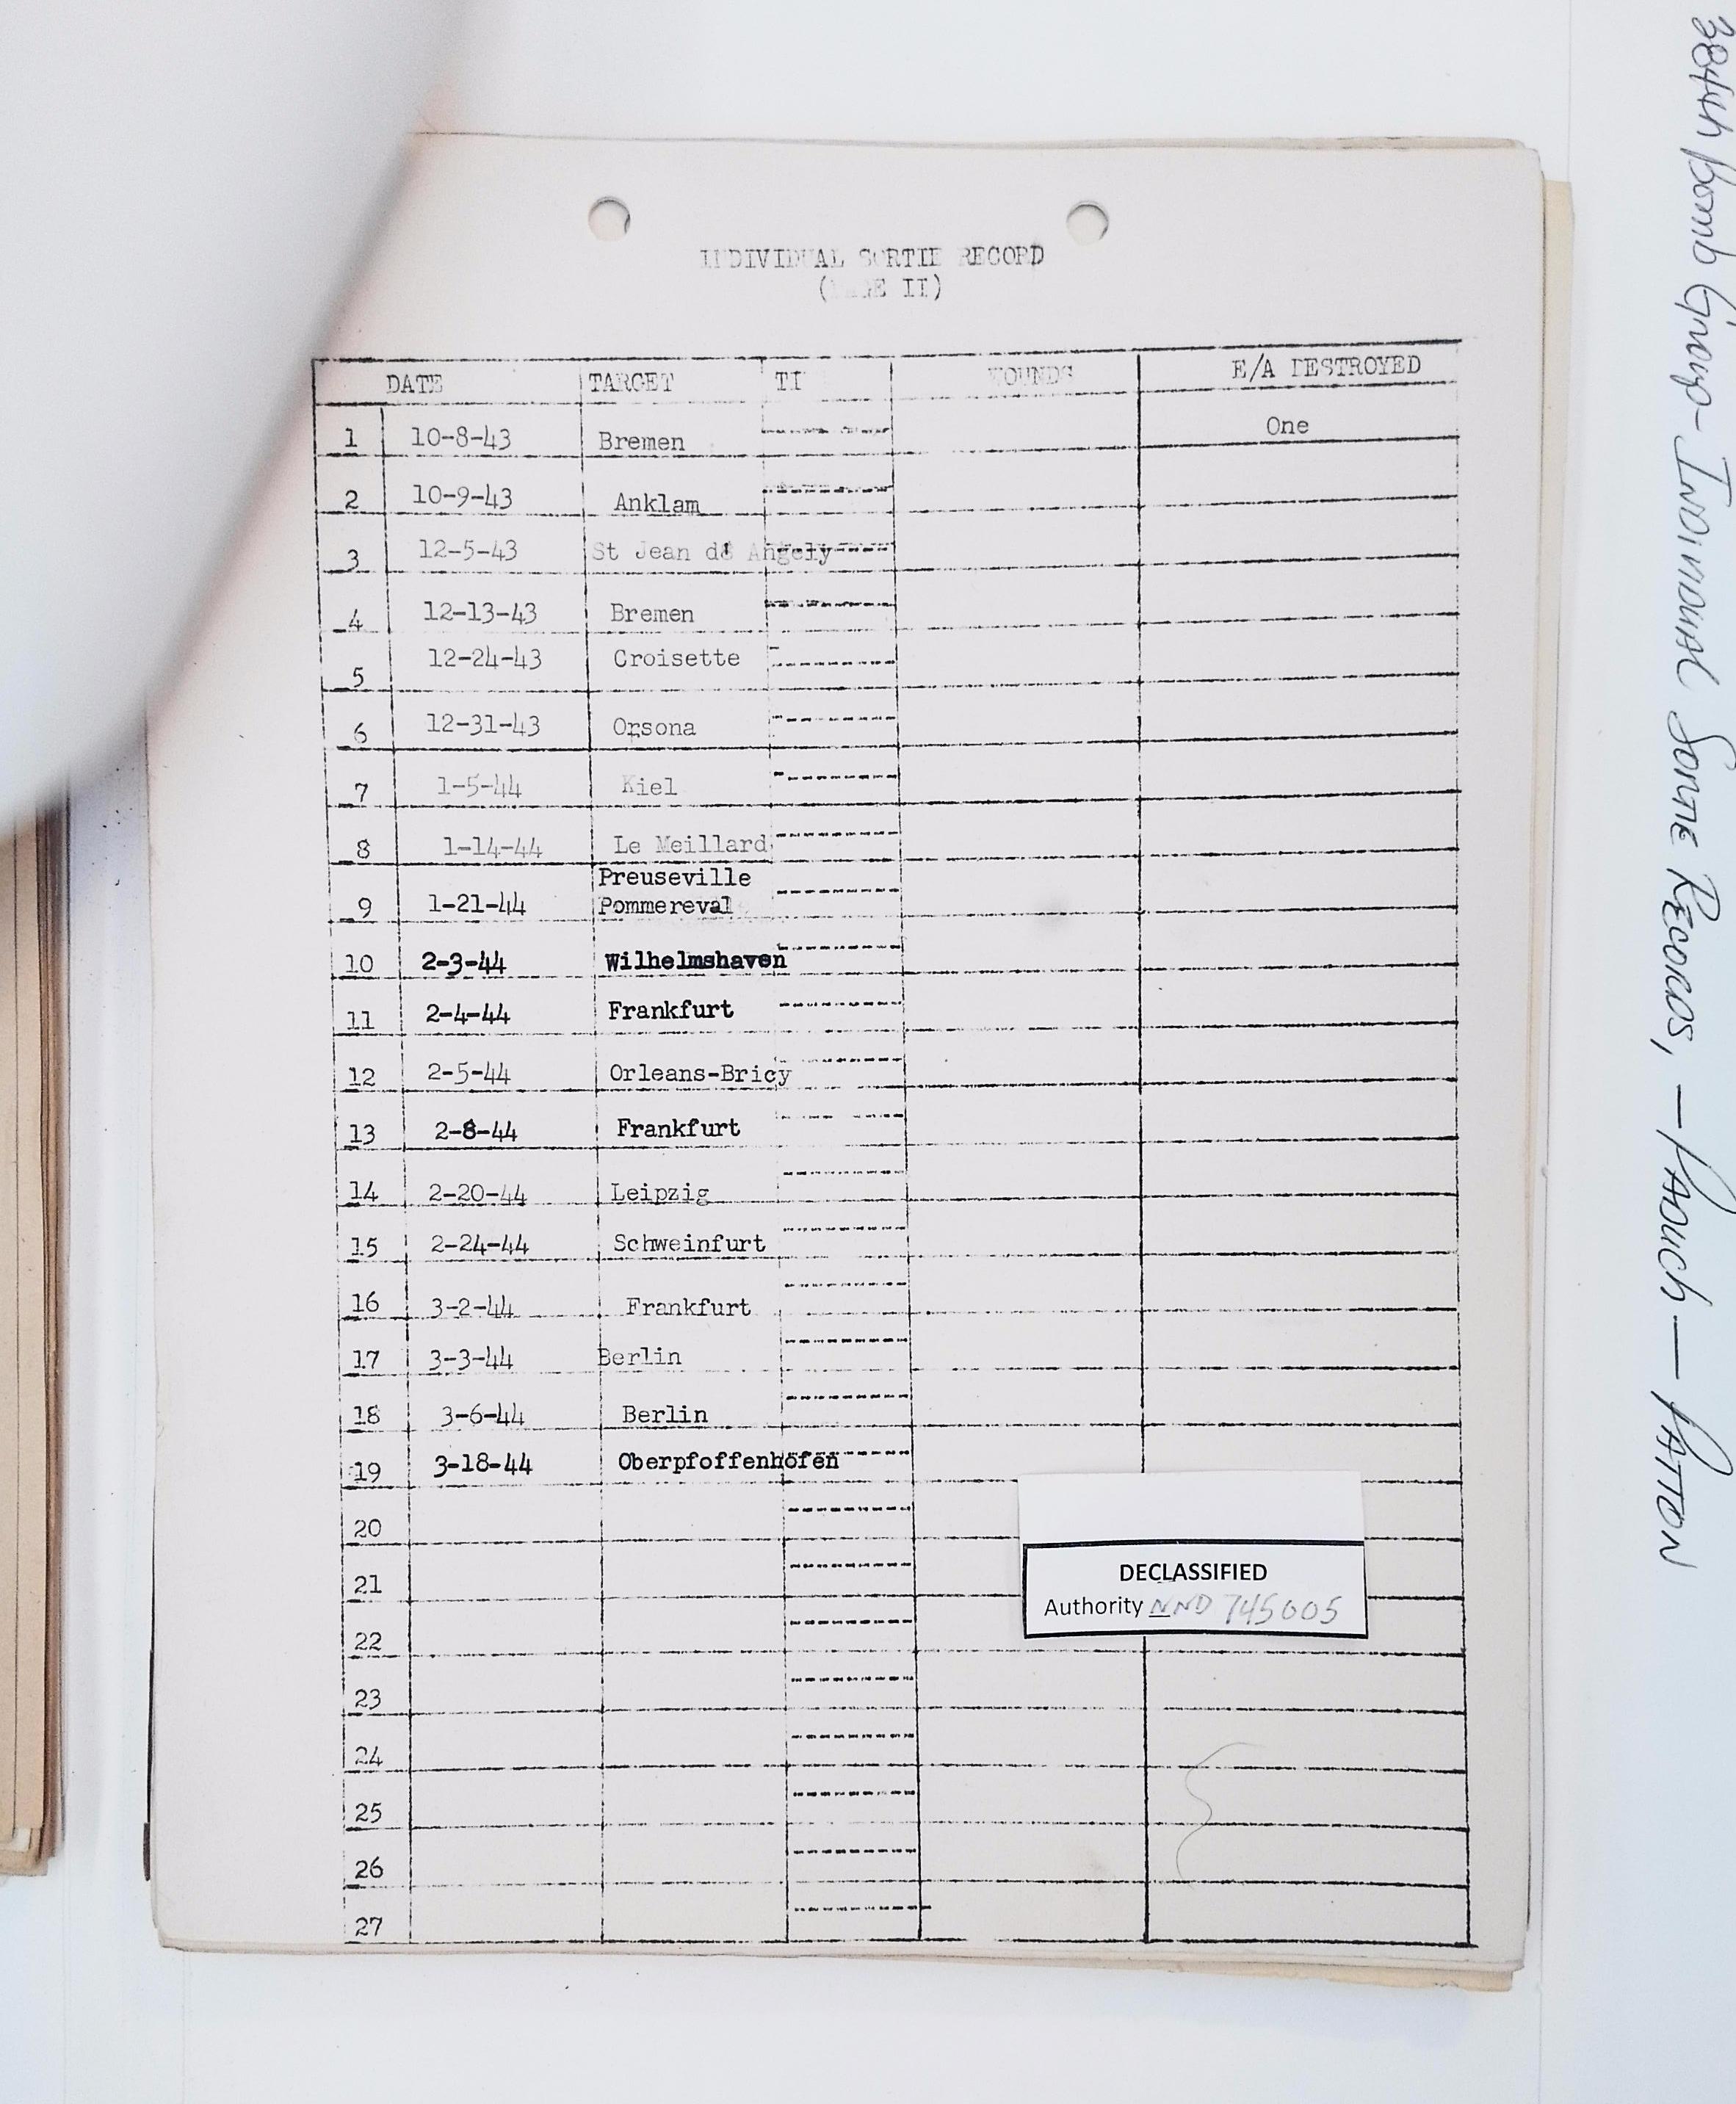 INDIVIDUAL SORTIE RECORD
(PAGE II)
DATE TARGET TI WOUNDS E/A DESTROYED
1 10-8-43 Bremen One
2 10-9-43 Anklam
3 12-5-43 St Jean de Angely
4 12-13-43 Bremen
5 12-24-43 Croisette
6 12-31-43 Orsona
7 1-5-44 Kiel
8 1-14-44 Le Meillard
Preuseville
9 1-21-44 Pommereval
10 2-3-44 Wilhelmshaven
11 2-4-44 Frankfurt
12 2-5-44 Orleans-Bricy
13 2-8-44 Frankfurt
14 2-20-44 Leipzig
15 2-24-44 Schweinfurt
16 3-2-44 Frankfurt
17 3-3-44 Berlin
18 3-6-44 Berlin
19 3-18-44 Oberpfoffenhofen
20
21
22
23
24
25
26
27
DECLASSIFIED
Authority NND 745005
384th Bomb Group - Individual Sortie Records, - Paduch - Patton